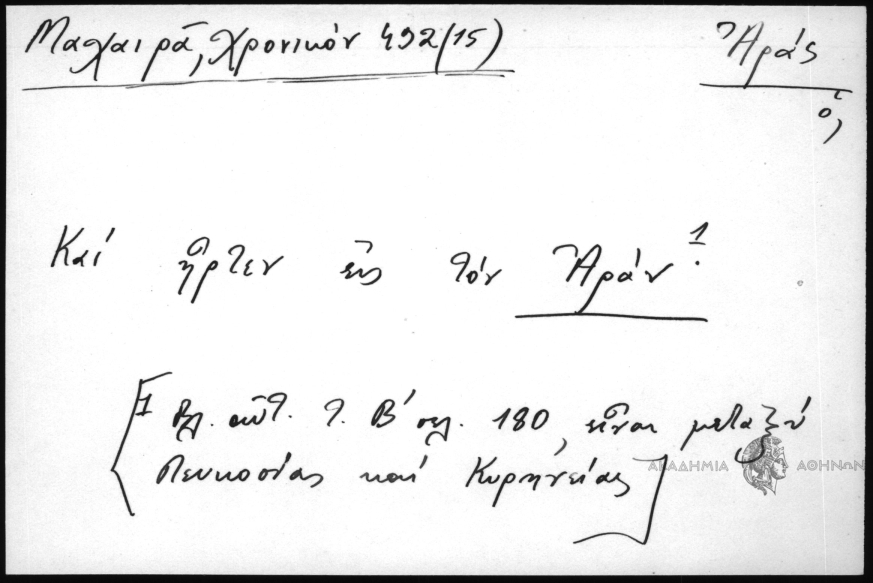 Μαχαιρᾶ, Χρονικόν 492(15)
Ἀράς
ὁ,
Καί ἦρτεν εἰς τόν Ἀράν 1.
[1 Βλ. αὐτ. τ. Β΄ σελ. 180, εἶναι μεταξύ
Λευκοσίας καί Κυρηνείας]
ΑΚΑΔΗΜΙΑ ΑΘΗΝΩΝ